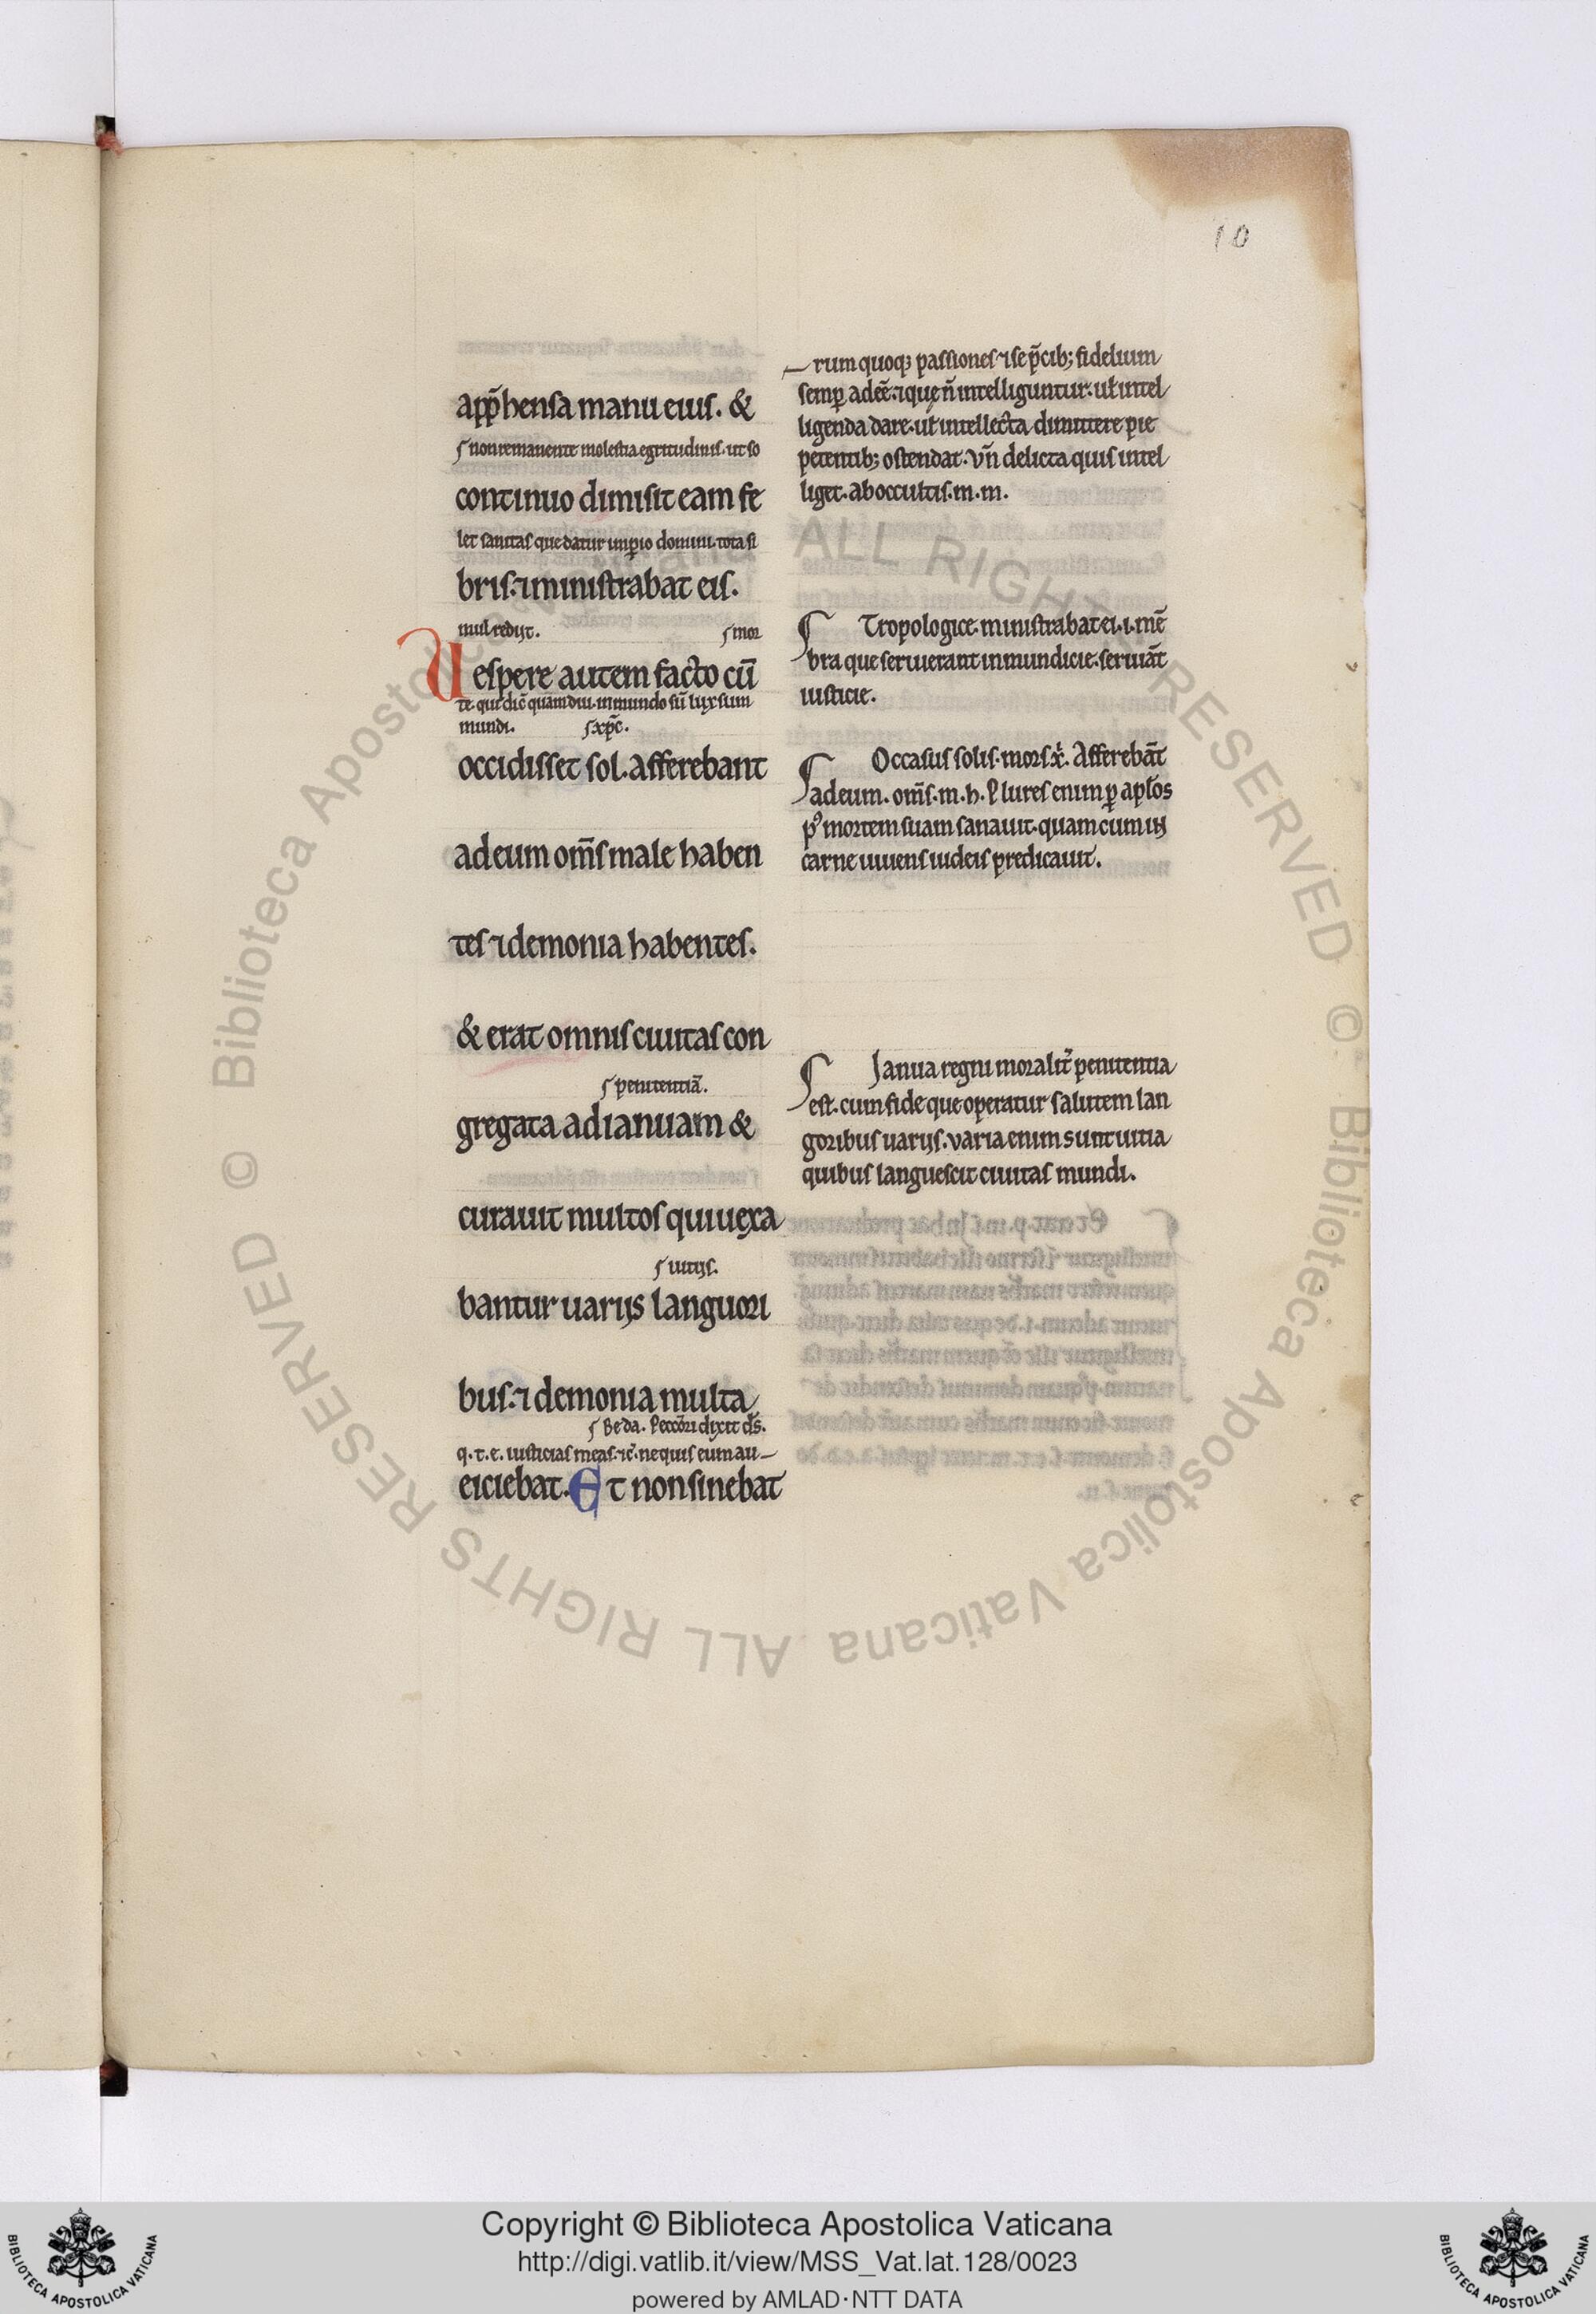 10
app̄hensa manu eius. &
ſ non remanente molestia egritudinis. ut so
continuo dimisit eam fe
let sanitas que datur imperio domini. tota si
bris. ⁊ ministrabat eis.
mul redijt. ſ mor
Vespere autem facto cū
te. qui dic̄ quam diu in mundo sū lux sum
mundi. ſ xp̄c.
occidisset sol. Afferebant
ad eum om̄s male haben
tes ⁊ demonia habentes.
& erat omnis ciuitas con
ſ penitentiā.
gregata ad ianuam &
curauit multos qui uexa
ſ uitijs.
bantur uarijs languori
bus. ⁊ demonia multa
ſ Beda. Peccōri dixit ds̄.
q. t. e. iusticias meas. ⁊c̄. ne quis eum au
eiciebat. Et non sinebat
rum quoq; passiones ⁊ se p̄cib; fidelium
semꝑ adeē. ⁊ que n̄ intelliguntur. ul̄ intel
ligenda dare. ul̄ intellecta dimittere pie
petentib; ostendat. Vn̄ delicta quis intel
liget. ab occultis. m. m.
Tropologice. ministrabat ei. i. mē
bra que seruierant inmundicie. seruāt
iusticie.
Occasus solis. mors x̄. Afferebāt
ad eum. om̄s. m. h. Plures enim ꝑ apl̄os
pꝰ mortem suam sanauit. quam cum in
carne uiuens iudeis predicauit.
Janua regni moralit̄ penitentia
est. cum fide que operatur salutem lan
goribus uarijs. varia enim sunt uitia
quibus languescit ciuitas mundi.
© Biblioteca Apostolica Vaticana ALL RIGHTS RESERVED © Biblioteca Apostolica Vaticana ALL RIGHTS RESERVED
Copyright © Biblioteca Apostolica Vaticana
http://digi.vatlib.it/view/MSS_Vat.lat.128/0023
powered by AMLAD·NTT DATA
BIBLIOTECA APOSTOLICA VATICANA
BIBLIOTECA APOSTOLICA VATICANA